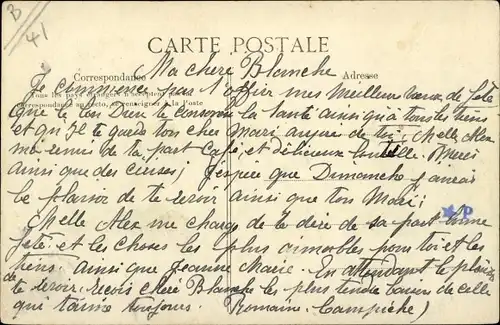 B
41
CARTE POSTALE
Correspondance
Adresse
Tous les pays étrangers n'acceptent pas
correspondance au recto, se renseigner à la Poste
Ma chère Blanche
Je commence par t'offrir mes meilleur vœux de fête
que le bon Dieu te conserve la santé ainsi qu'à tous les tiens
et qu'Il te garde ton cher Mari auprès de toi, Melle Alex
ma remis de ta part Café et délicieux Merci
ainsi que des cerises; J'espère que Dimanche j'aurai
le plaisir de te revoir ainsi que ton Mari;
Melle Alex me charge de te dire de sa part bonne
fête et les choses les plus aimables pour toi et les
tiens ainsi que Jeanne Marie. En attendant le plaisir
de te revoir reçois chère Blanche les plus tendres baisers de celle
qui t'aime toujours. Romaine Campiche)
P